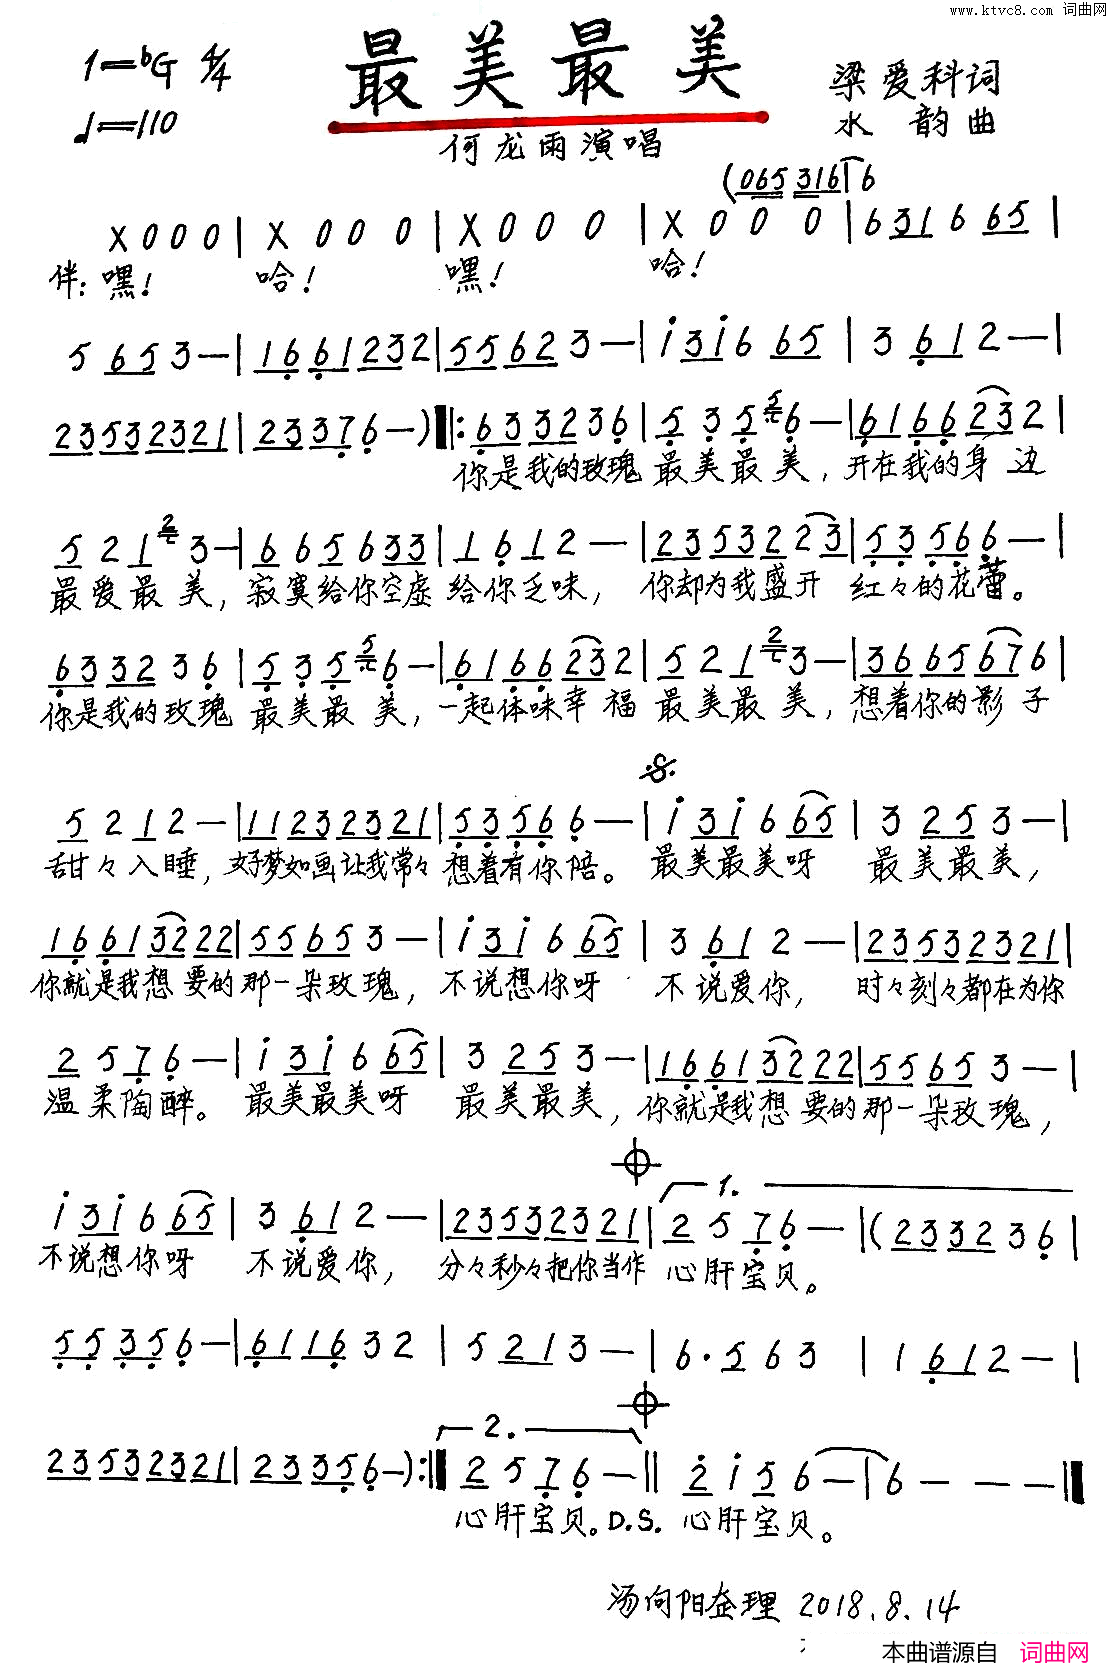 www.ktvc8.com 词曲网
1=♭G 4/4 最美最美 梁爱科词
♩=110 水韵曲
何龙雨演唱
(065 316 | 6
X 0 0 0 | X 0 0 0 | X 0 0 0 | X 0 0 0 | 6 31 6 65 |
伴:嘿! 哈! 嘿! 哈!
5 65 3 — | 16 61 23 2 | 55 62 3 — | i 3i 6 65 | 3 61 2 — |
23 53 23 21 | 23 37 6 — ) ‖: 63 32 3 6 | 5 3 5 6 — | 61 66 23 2 |
你是我的玫瑰 最美最美, 开在我的身边
5 2 1 3 — | 6 6 5 6 33 | 1 6 1 2 — | 23 53 22 3 | 5 3 56 6 — |
最爱最美, 寂寞给你空虚 给你乏味, 你却为我盛开 红々的花蕾。
63 32 3 6 | 5 3 5 6 — | 61 66 23 2 | 5 2 1 3 — | 36 65 67 6 |
你是我的玫瑰 最美最美, 一起体味幸福 最美最美, 想着你的影子
5 2 1 2 — | 11 23 23 21 | 53 56 6 — | i 3i 6 65 | 3 25 3 — |
甜々入睡, 好梦如画让我常々 想着有你陪。 最美最美呀 最美最美,
16 61 32 22 | 55 65 3 — | i 3i 6 65 | 3 61 2 — | 23 53 23 21 |
你就是我想要的那一朵玫瑰, 不说想你呀 不说爱你, 时々刻々都在为你
2 5 7 6 — | i 3i 6 65 | 3 25 3 — | 16 61 32 22 | 55 65 3 — |
温柔陶醉。 最美最美呀 最美最美, 你就是我想要的那一朵玫瑰,
1.
i 3i 6 65 | 3 61 2 — | 23 53 23 21 | 2 5 7 6 — | (23 32 3 6 |
不说想你呀 不说爱你, 分々秒々把你当作 心肝宝贝。
55 35 6 — | 61 16 3 2 | 5 21 3 — | 6· 5 6 3 | 1 61 2 — |
2.
23 53 23 21 | 23 35 6 — ) :‖ 2 5 7 6 — ‖ 2 i 5 6 — | 6 — — — ‖
心肝宝贝。D.S. 心肝宝贝。
汤向阳整理 2018.8.14
本曲谱源自 词曲网